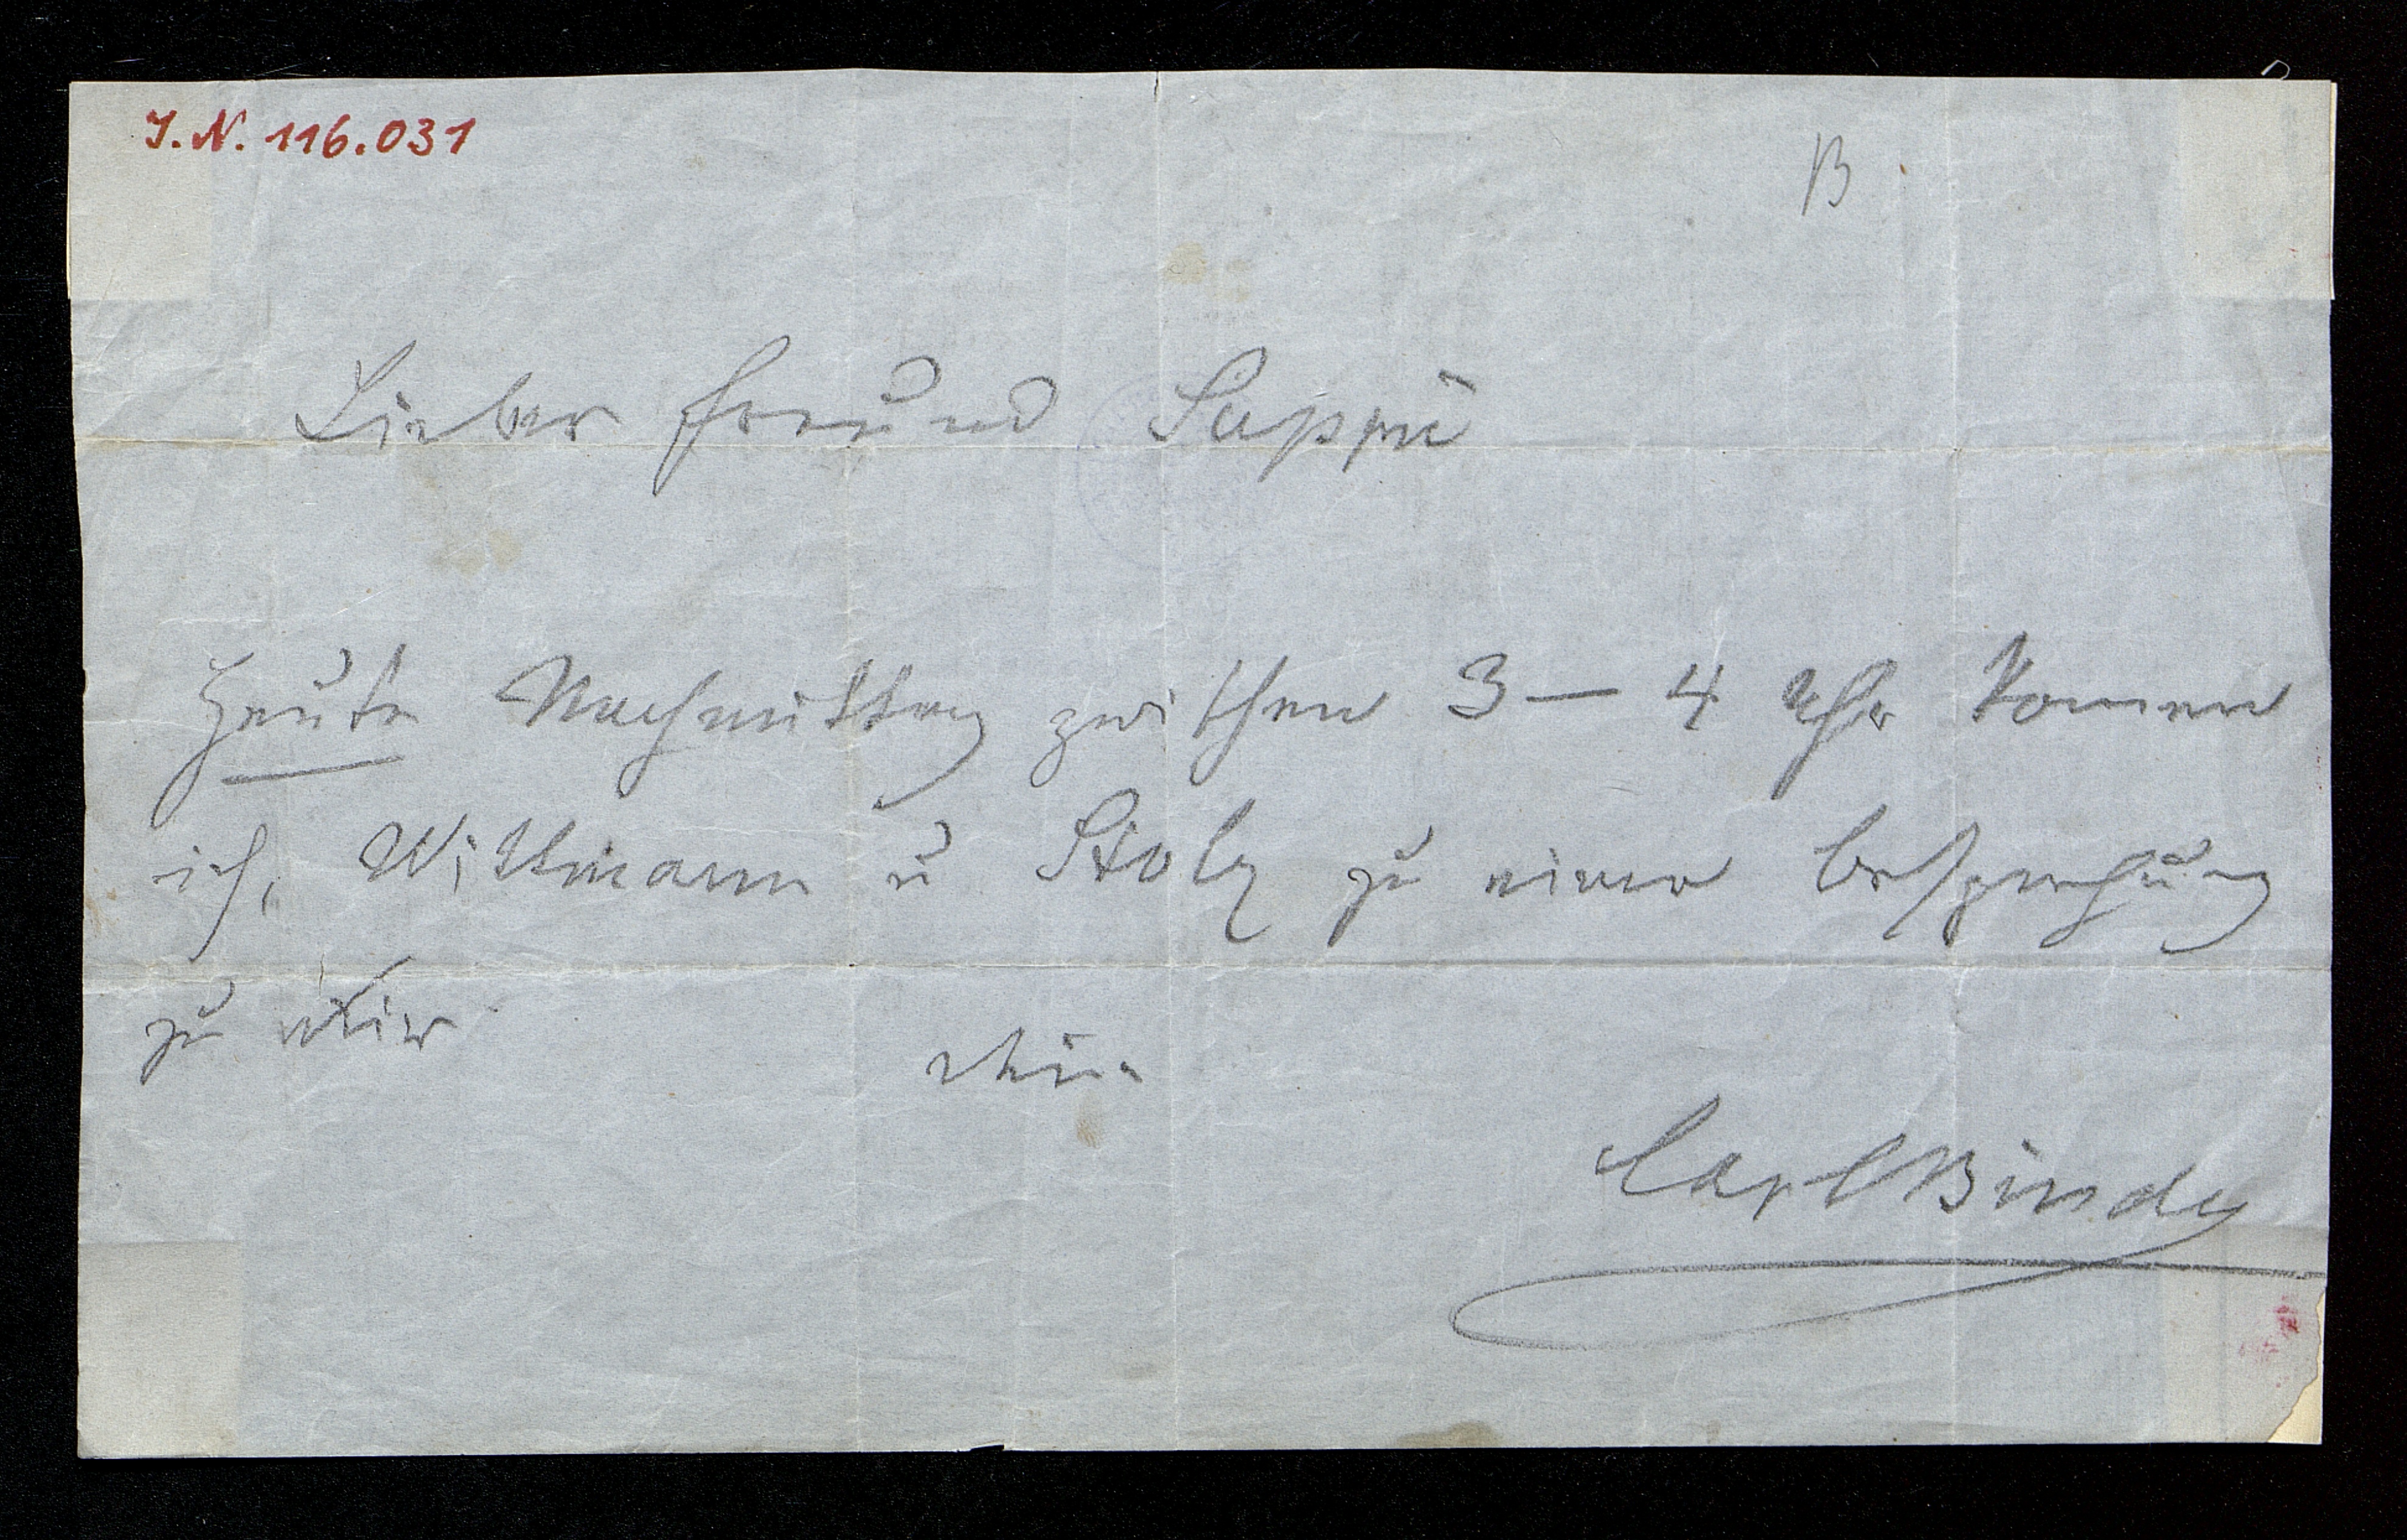 I.N. 116.031
B
Lieber Freund Suppè
Heute Nachmittag zwischen 3 — 4 Uhr komen
ich, Wittmann u Stolz zu einer Besprechung
zu dir
dein
Carl Binder